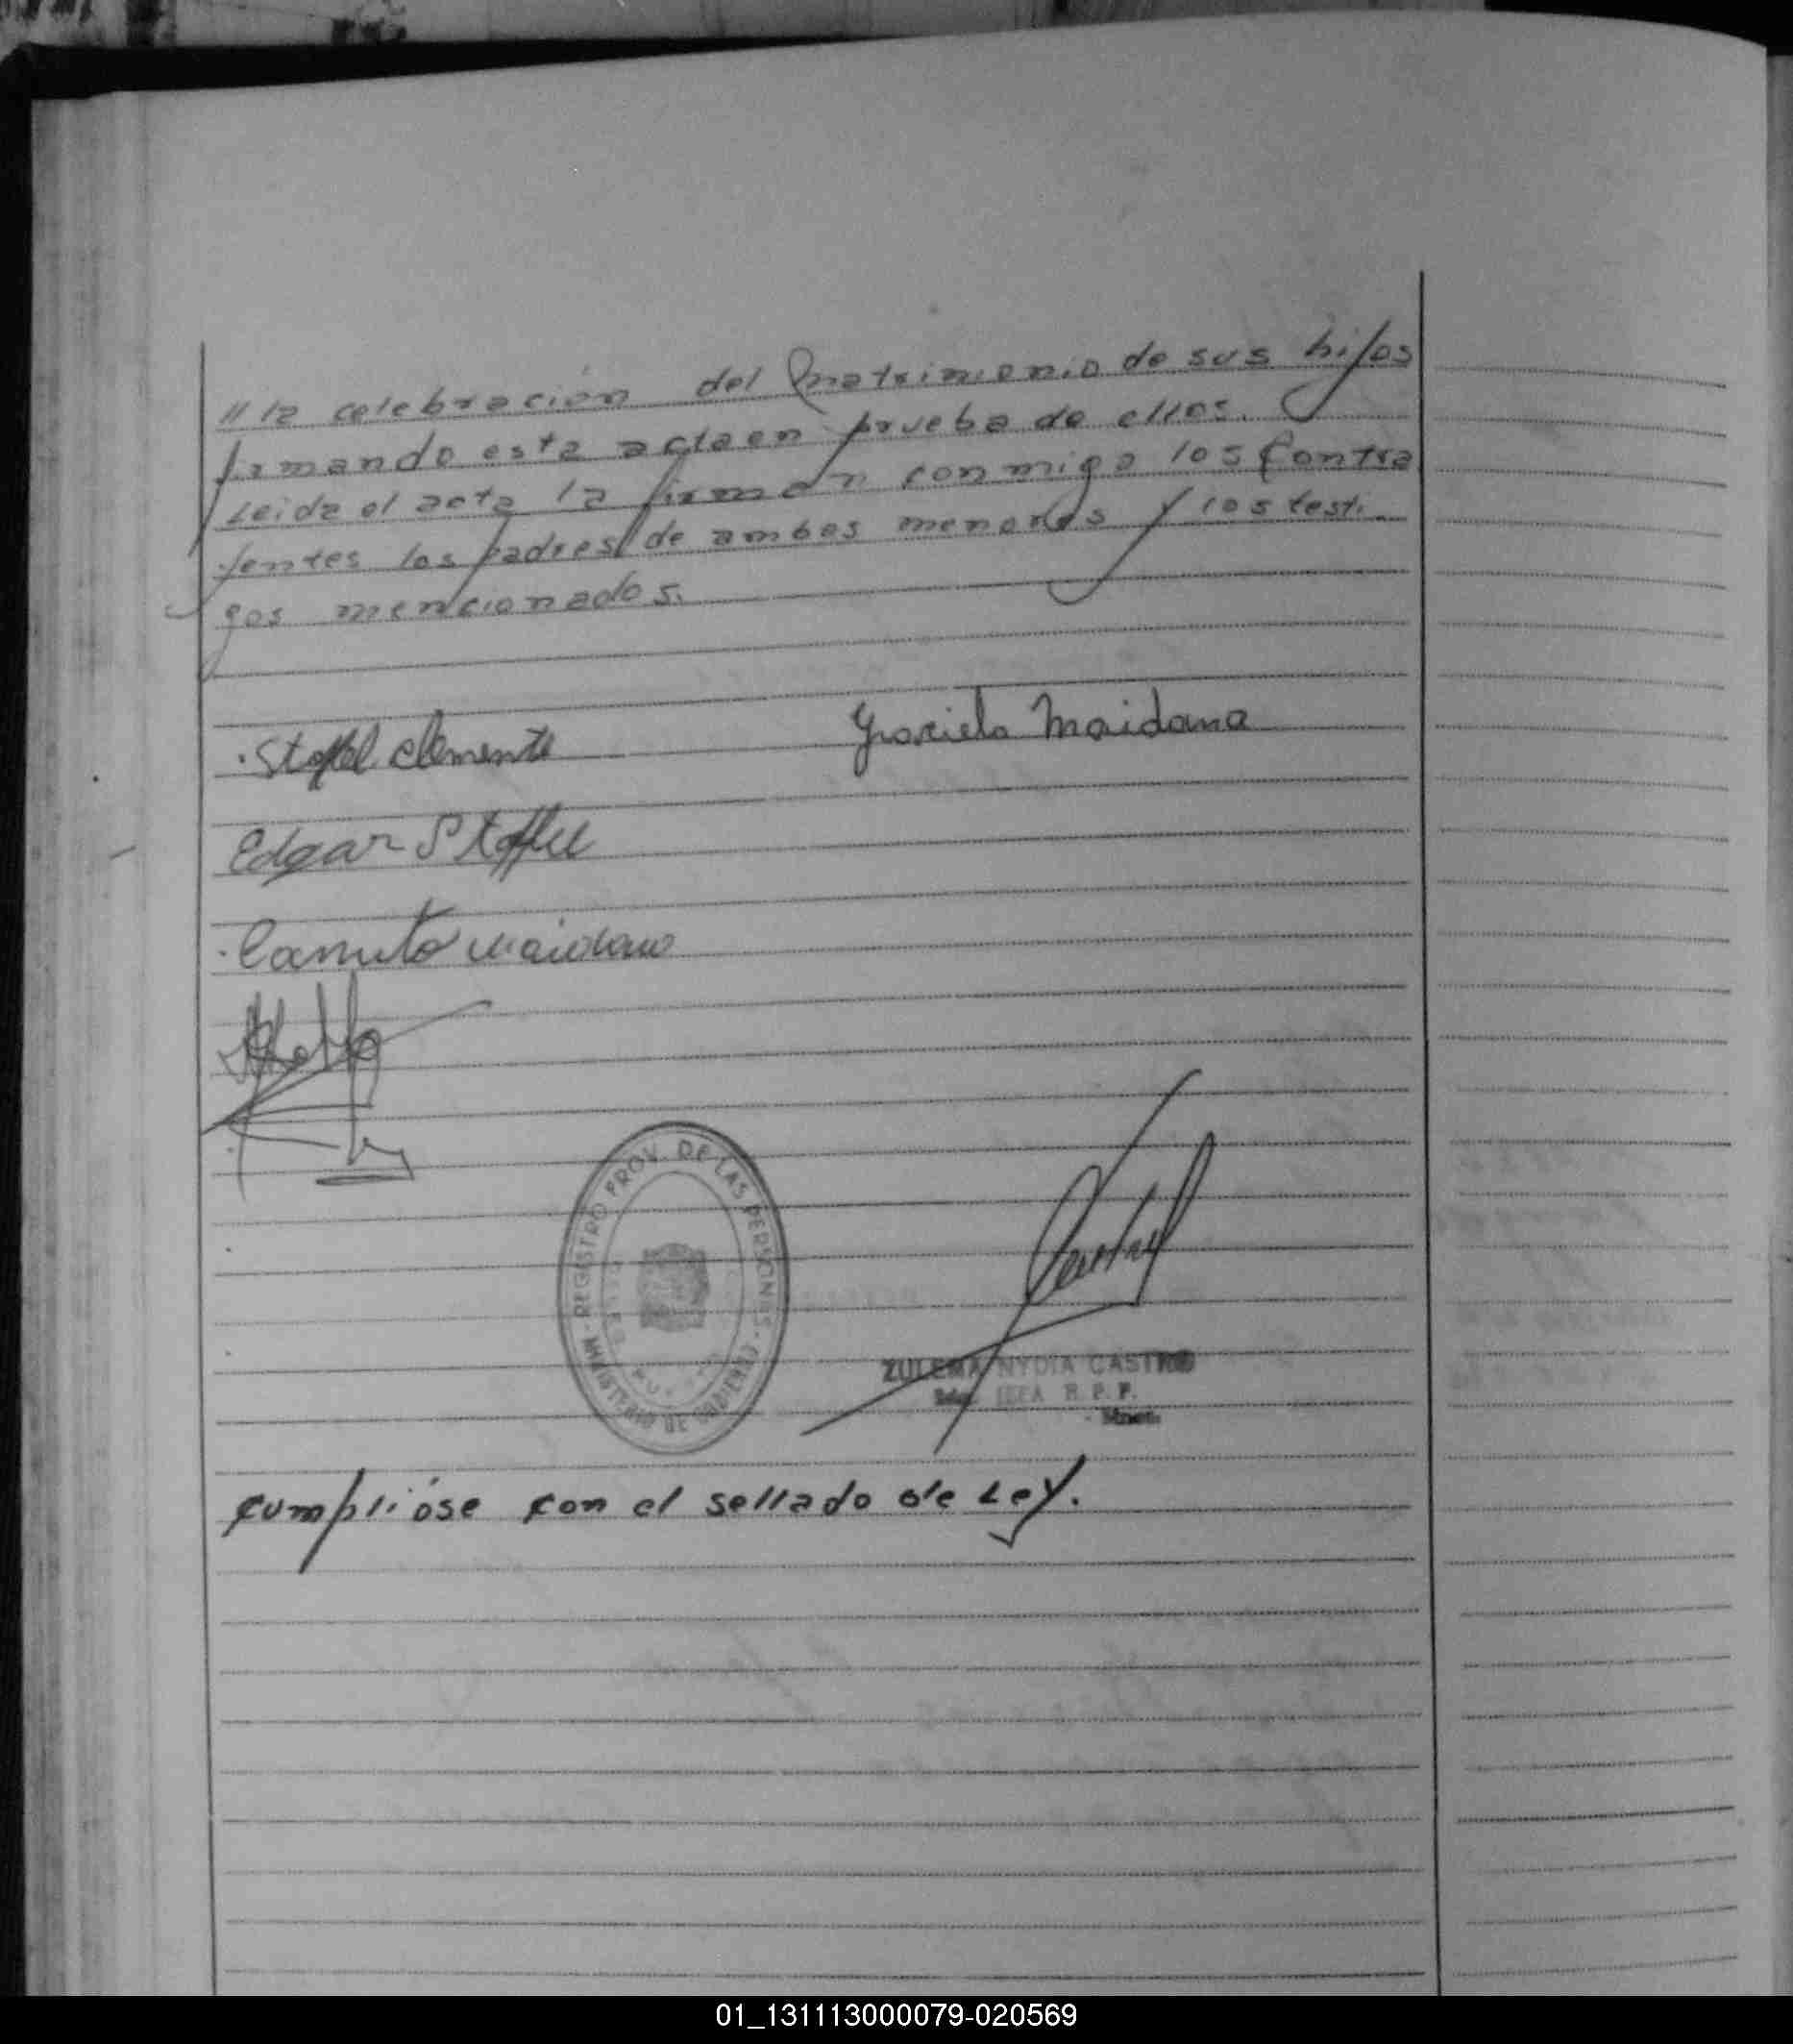 // la celebración del Matrimonio de sus hijos
firmando esta acta en prueba de ellos.
Leida el acta la firman conmigo los Contra
yentes los padres de ambos menores y los testi
gos mencionados.
Stoffel Clemente Graciela Maidana
Edgar Stoffel
Canuto Maidana
REGISTRO PROV. DE LAS PERSONAS
MINISTERIO DE GOBIERNO
Castro
ZULEMA NYDIA CASTRO
R. P. P.
Cumplióse con el sellado de Ley.
01_131113000079-020569